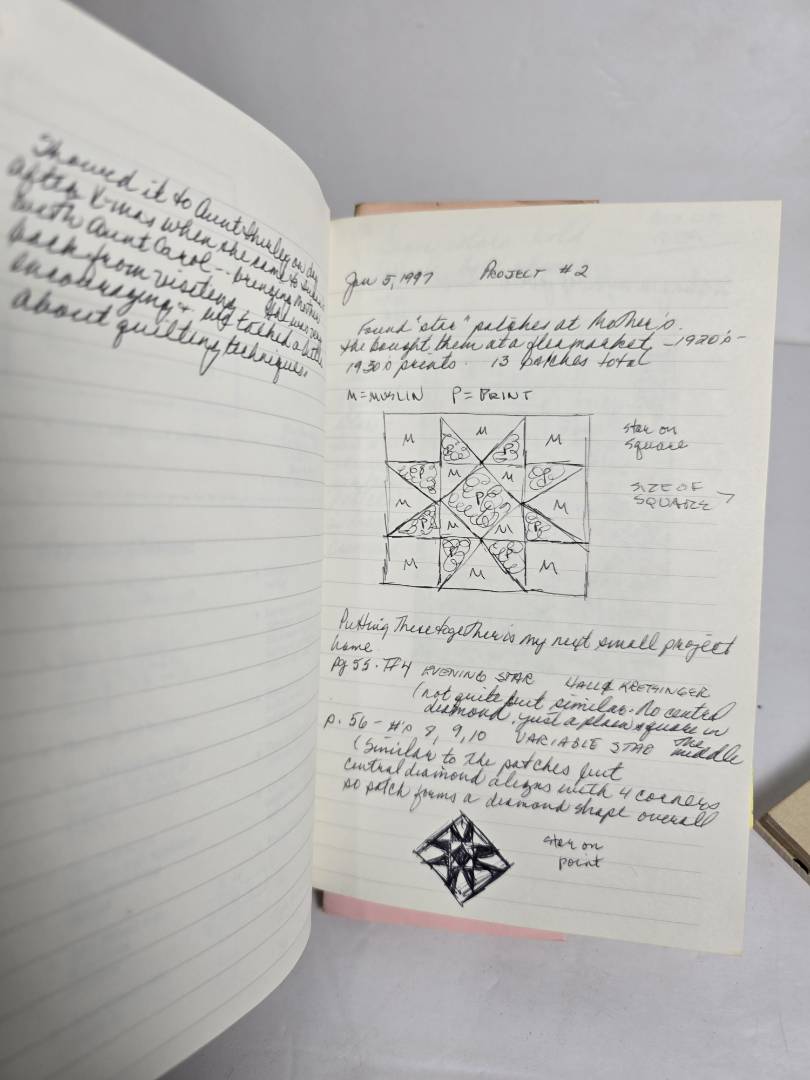 Showed it to Aunt Shirley on day
after X-mas when she came to
with Aunt Carol -- bringing Mother
back from visiting. She was very
encouraging + we talked a little
about quilting techniques.
Jan 5, 1997 PROJECT #2
Found "star" patches at Mother's.
She bought them at a flea market - 1920's -
1930's prints. 13 PATCHES TOTAL
M = MUSLIN P = PRINT
M M M
P P
P M M P
M P M
P M M P
P P
M M M
star on
square
SIZE OF
SQUARE?
Putting these together is my next small project
home
pg 55 - #4 EVENING STAR HALL & KRETSINGER
(not quite but similar. No central
diamond, just a plain square in
the middle
p. 56 - #'s 8, 9, 10 VARIABLE STAR
(Similar to the patches but
central diamond aligns with 4 corners
so patch forms a diamond shape overall
star on
point